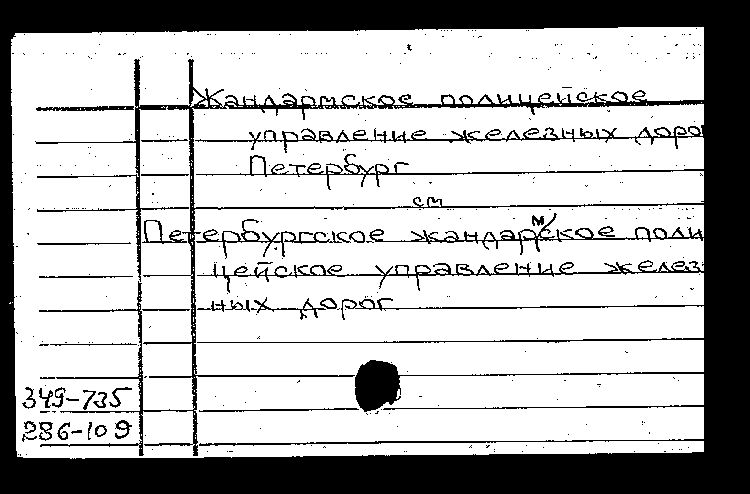 Жандармское полицейское
управление железных доро
Петербург
см
Петербургское жандармское поли
цейское управление желез
ных дорог
349-735
286-109